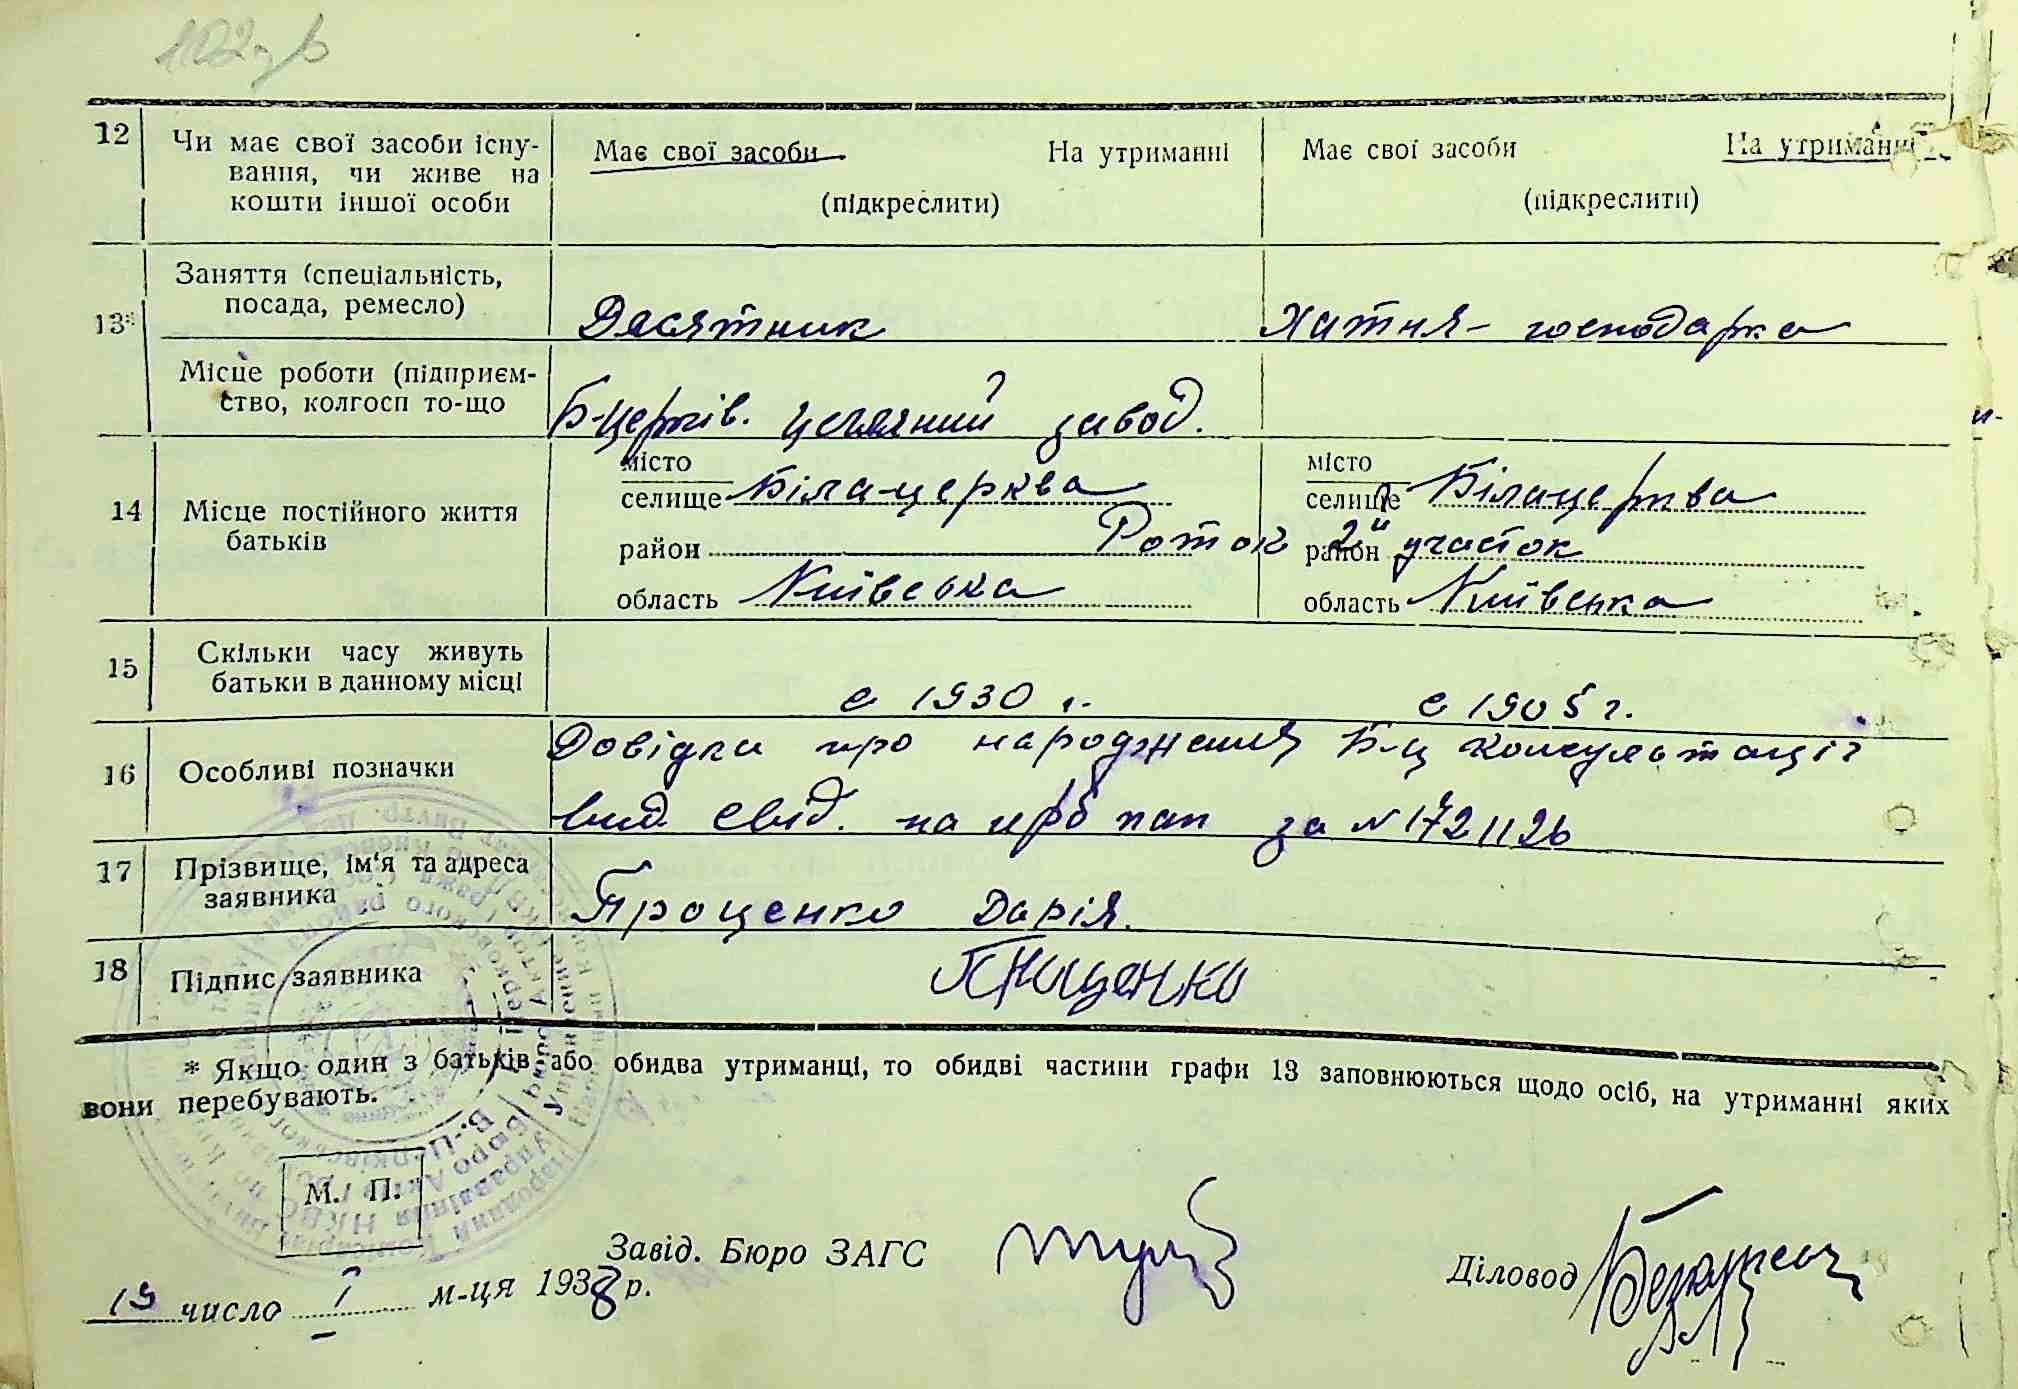 12 Чи має свої засоби існу-
вання, чи живе на
кошти іншої особи
Має свої засоби На утриманні
(підкреслити)
Має свої засоби На утриманні
(підкреслити)
13* Заняття (спеціальність,
посада, ремесло)
Десятник
Хатня - господарка
Місце роботи (підприєм-
ство, колгосп то-що
Б-Церків. цегляний завод.
14 Місце постійного життя
батьків
місто
селище Біла-церква
район Роток
область Київська
місто
селище Білацерква
район 2й участок
область Київська
15 Скільки часу живуть
батьки в данному місці
с 1930 г.
с 1905 г.
16 Особливі позначки
Довідки про народження Б-ц консультації
вид. свід. на за № 1721126
17 Прізвище, ім'я та адреса
заявника
Проценко Дарія.
18 Підпис заявника
Проценко
* Якщо один з батьків або обидва утриманці, то обидві частини графи 13 заповнюються щодо осіб, на утриманні яких
вони перебувають.
М. П.
Завід. Бюро ЗАГС
Діловод
19 число I м-ця 1938 р.